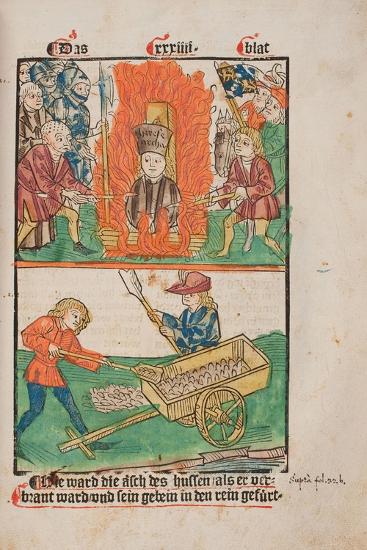 Das xxxiiii· blat
herese
archa
Hie ward die äsch des hussen/als er ver-
brant ward vnd sein gebein in den rein gefürt·
Supra fol. 22. b.